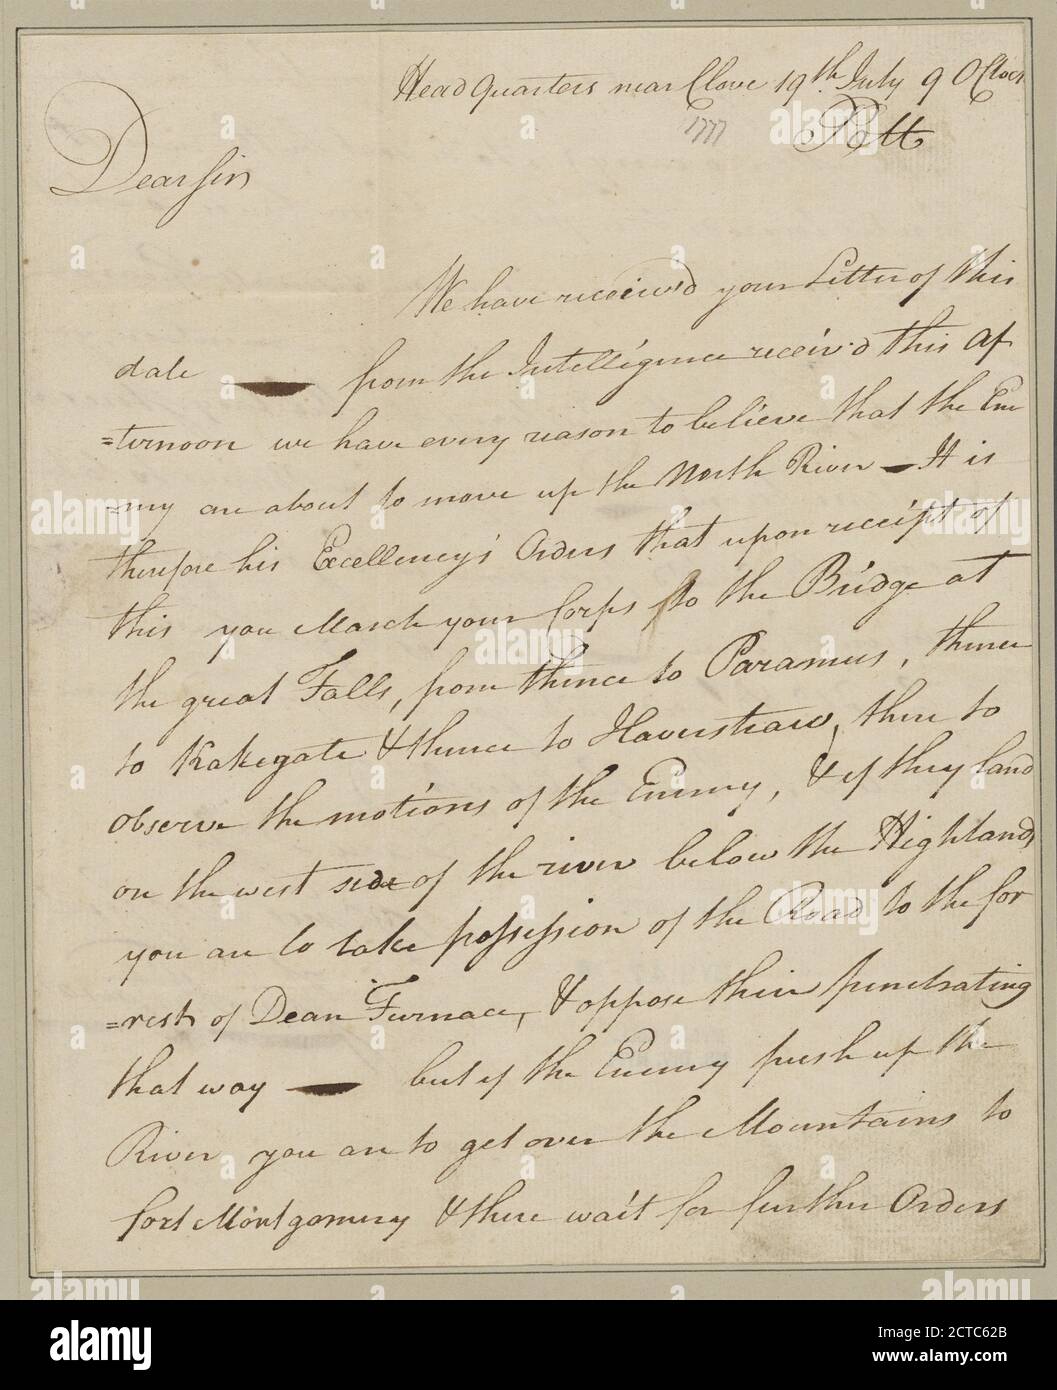 Head Quarters near Clove 19th July 9 OClock
1777
P.M
Dear Sir
We have receiev'd your Letter of this
date — from the Intelligence receiv'd this Af
=ternoon we have every reason to believe that the Ene
=my are about to move up the North River — It is
therefore his Excellency's Orders that upon receipt of
this you March your Corps to the Bridge at
the great Falls, from thence to Paramus, thence
to Kakegate & thence to Haverstraw, there to
observe the motions of the Enemy, & if they land
on the west side of the river below the Highlands
you are to take possession of the Road to the for
=rest of Dean Furnace, & oppose their penetrating
that way — but if the Enemy push up the
River you are to get over the Mountains to
fort Montgomery & there wait for further Orders
alamy
Image ID: 2CTC62B
www.alamy.com